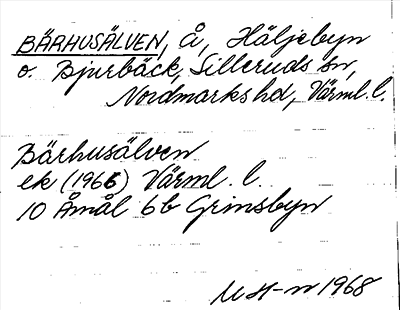 BÄRHUSÄLVEN, å, Häljebyn
o. Bjurbäck, Silleruds sn,
Nordmarks hd, Värml. l.
Bärhusälven
ek (1966) Värml. l.
10 Åmål 6b Grinsbyn
MH-n 1968